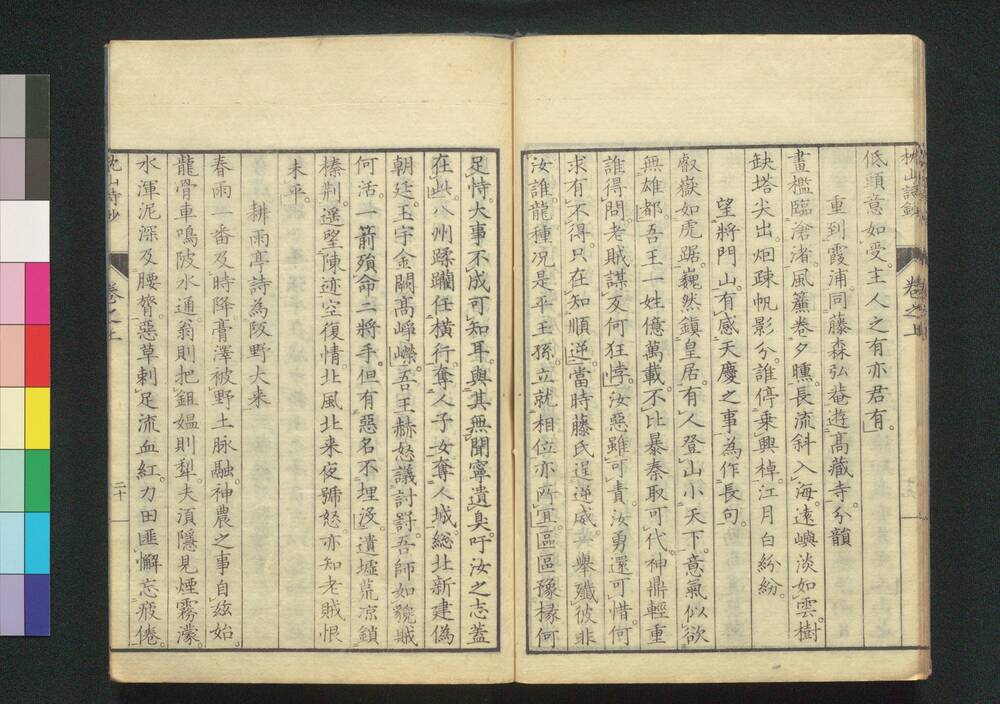 枕山詩鈔 卷之上
低頭意如受。主人之有亦君有。
重到霞浦同藤森弘菴遊高藏寺。分韻
畫檻臨滄渚。風簾卷夕曛。長流斜入海。遠嶼淡如雲。樹
缺塔尖出。烟疎帆影分。誰停乗興棹。江月白紛紛。
望將門山。有感天慶之事。為作長句。
叡嶽如虎踞。巍然鎮皇居。有人登山小天下。意氣似欲
無雄都。吾王一姓億萬載。不比暴秦取可代。神鼎輕重
誰得問。老賊謀叉何狂悖。汝惡雖可責。汝勇還可惜。何
求有不得。只在知順逆。當時藤氏逞逆威。舉殲彼非
汝誰。龍種况是平王孫。立就相位亦所宜。區區豫掾何
足恃。大事不成可知耳。與其無聞寧遺臭。吁汝之志蓋
在此。八州蹂躙任橫行。奪人子女奪人城。総北新建偽
朝廷。玉宇金闕髙崢嶸。吾王赫怒議討罸。吾師如貔賊
何活。一箭殞命二將手。但有惡名不埋沒。遺墟荒凉鎖
榛荆。遥望陳迹空復情。北風北来夜號怒。亦知老賊恨
未平。
耕雨亭詩為阪野大来
春雨一番及時降。膏澤被野土脉融。神農之事自玆始。
龍骨車鳴陂水通。翁則把鉏媼則犁。夫須隱見煙霧濛。
水渾泥深及腰膂。惡草刺足流血紅。力田匪懈忘疲倦。
枕山詩鈔 卷之上 二十